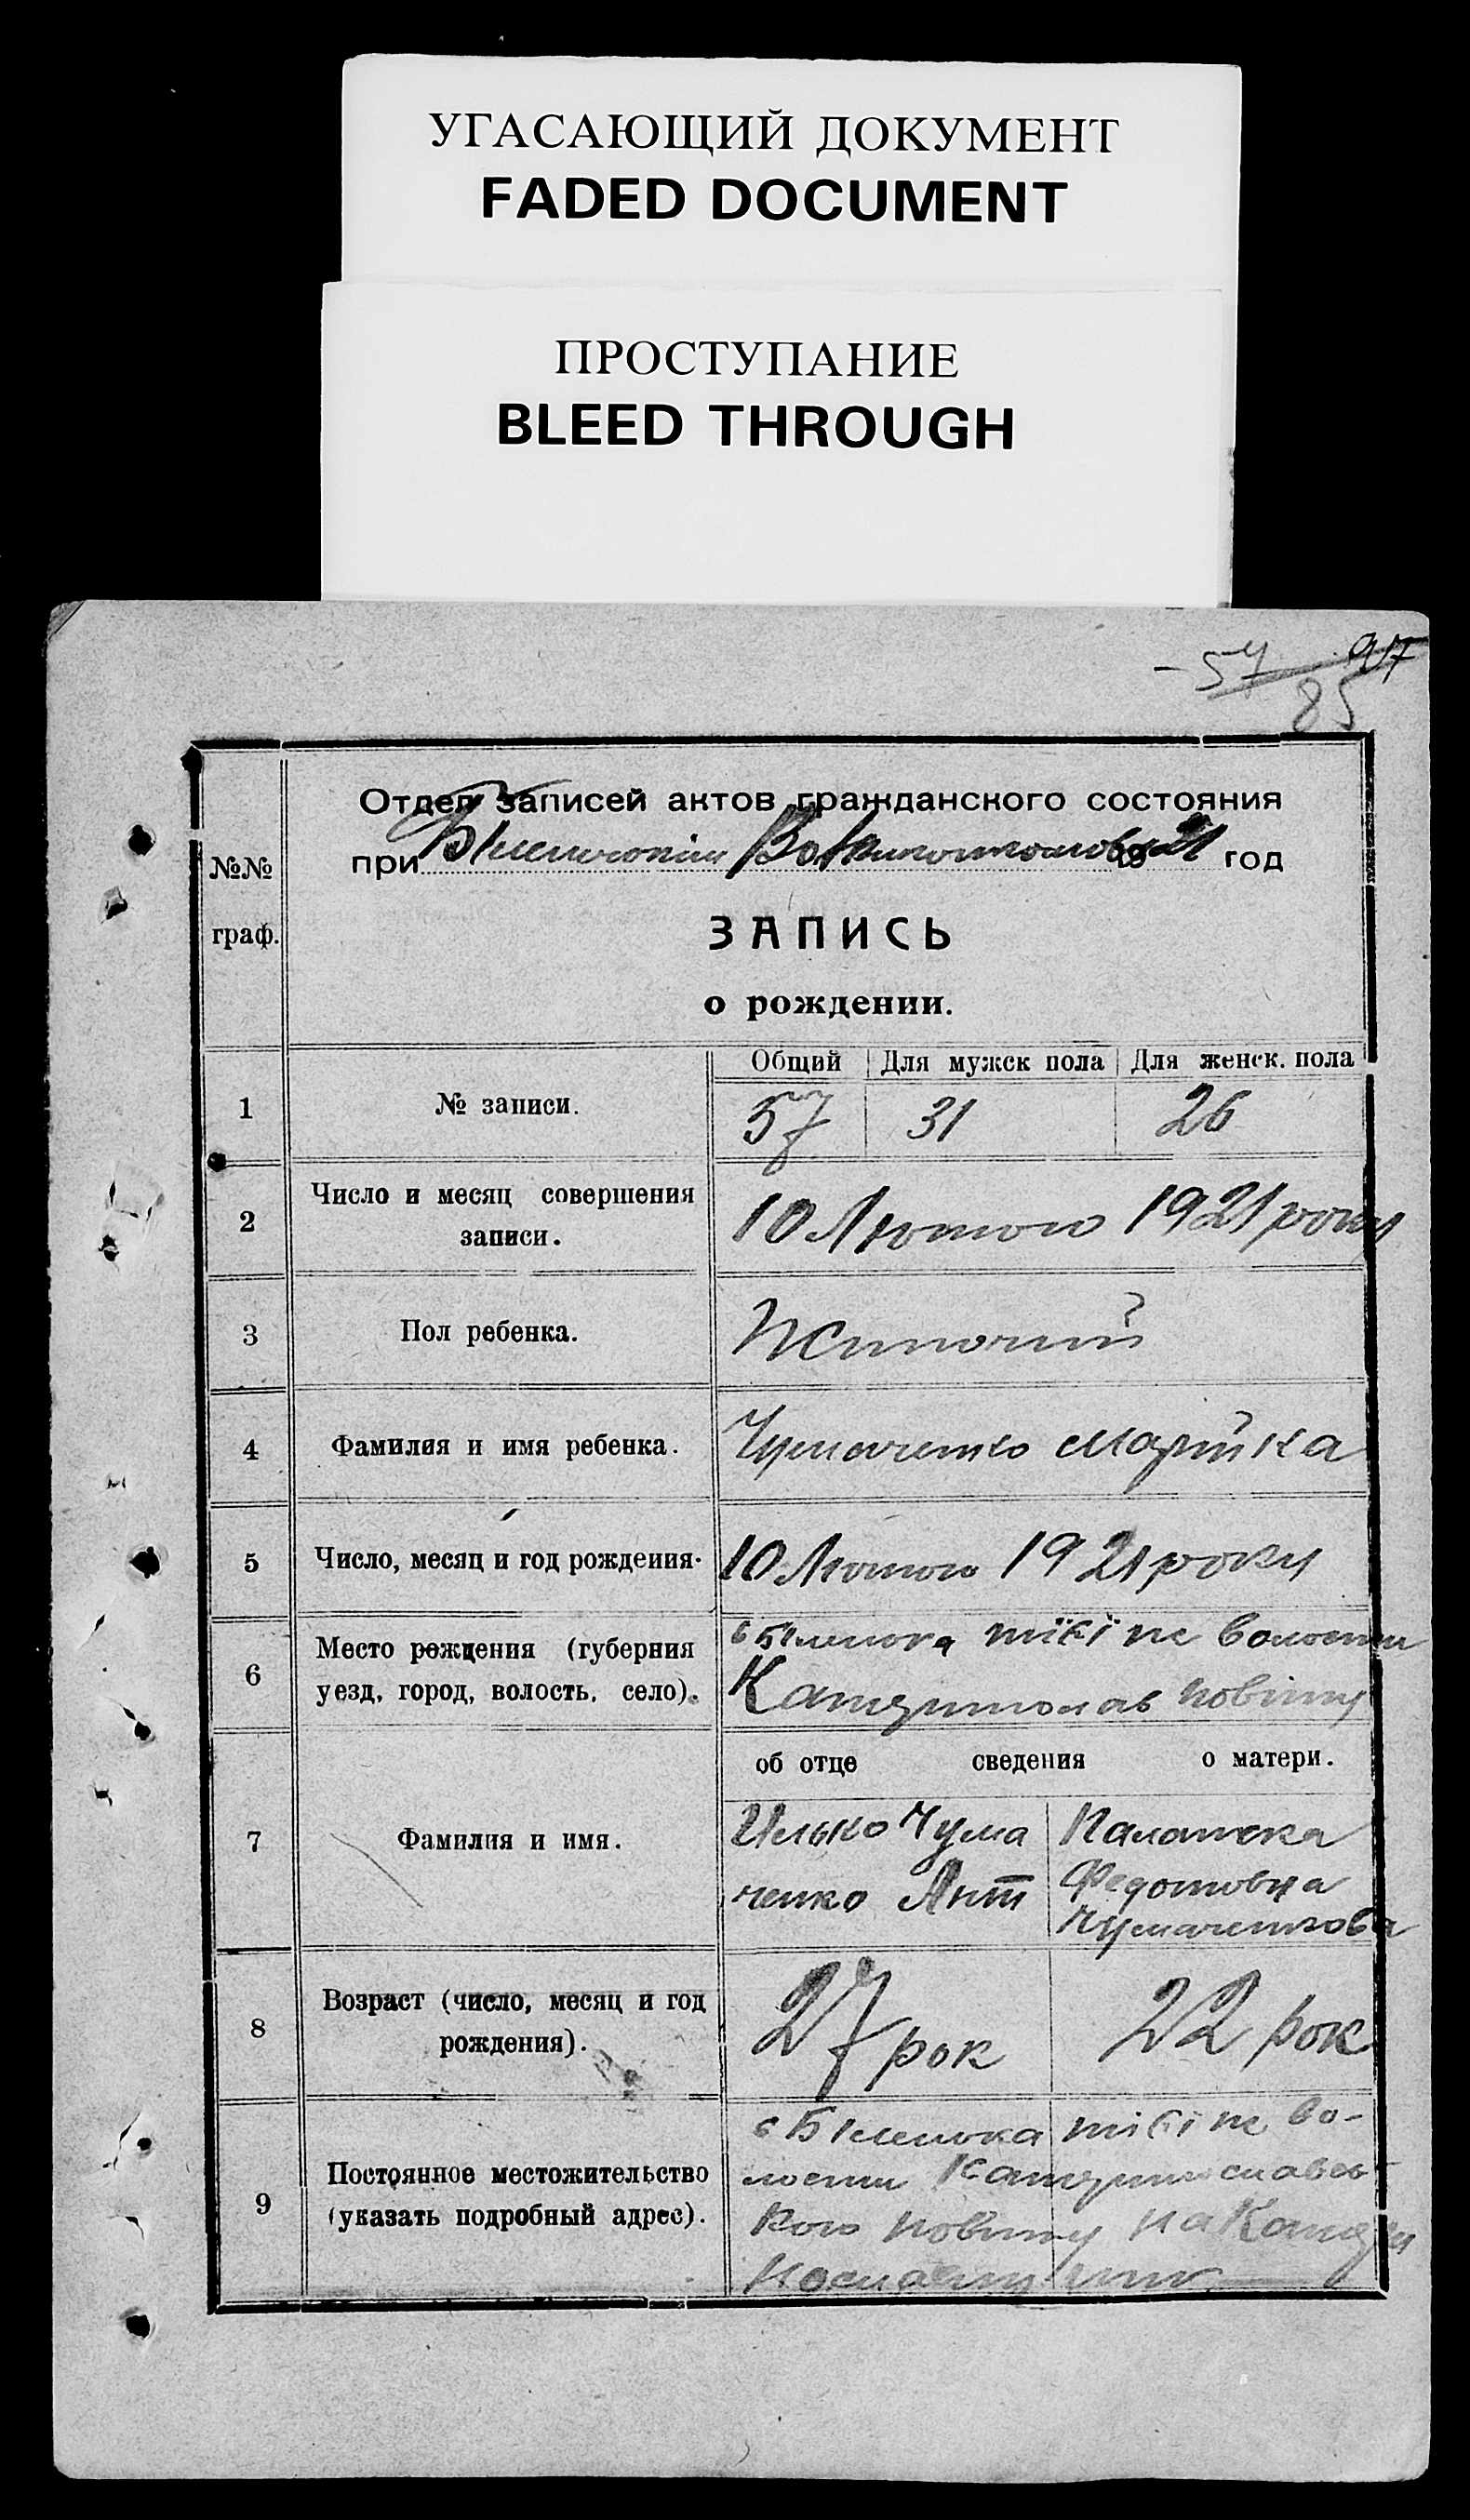 УГАСАЮЩИЙ ДОКУМЕНТ
FADED DOCUMENT
ПРОСТУПАНИЕ
BLEED THROUGH
57 97
85
Отдел записей актов гражданского состояния
при 1921 год
№№
граф.
ЗАПИСЬ
о рождении.
Общий Для мужск пола Для женск. пола
1 № записи. 57 31 26
2 Число и месяц совершения
записи. 10 Лютого 1921 року
3 Пол ребенка. Жиночий
4 Фамилия и имя ребенка. Чумаченко Марийка
5 Число, месяц и год рождения. 10 Лютого 1921 року
6 Место рождения (губерния
уезд, город, волость, село). волости
Катеринослав повіту
об отце сведения о матери.
7 Фамилия и имя. Илько Чума Палажка
ченко Ант Федотовна
Чумаченкова
8 Возраст (число, месяц и год
рождения). 27 рок 22 рок
9 Постоянное местожительство
(указать подробный адрес). во-
лости Катеринославсь
кого повіту на